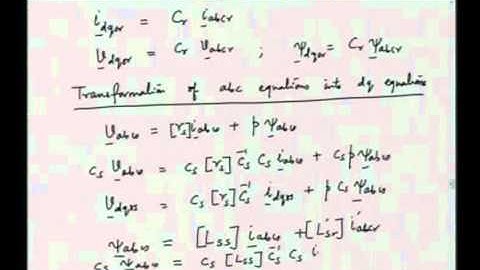 i_dqor = C_r i_abcr
v_dqor = C_r v_abcr ; ψ_dqor = C_r ψ_abcr
Transformation of abc equations into dq equations
v_abcs = [r_s] i_abcs + p ψ_abcs
C_s v_abcs = C_s [r_s] C_s^-1 C_s i_abcs + C_s p ψ_abcs
v_dqos = C_s [r_s] C_s^-1 i_dqos + p C_s ψ_abcs
ψ_abcs = [L_ss] i_abcs + [L_sr] i_abcr
C_s ψ_abcs = C_s [L_ss] C_s^-1 C_s i